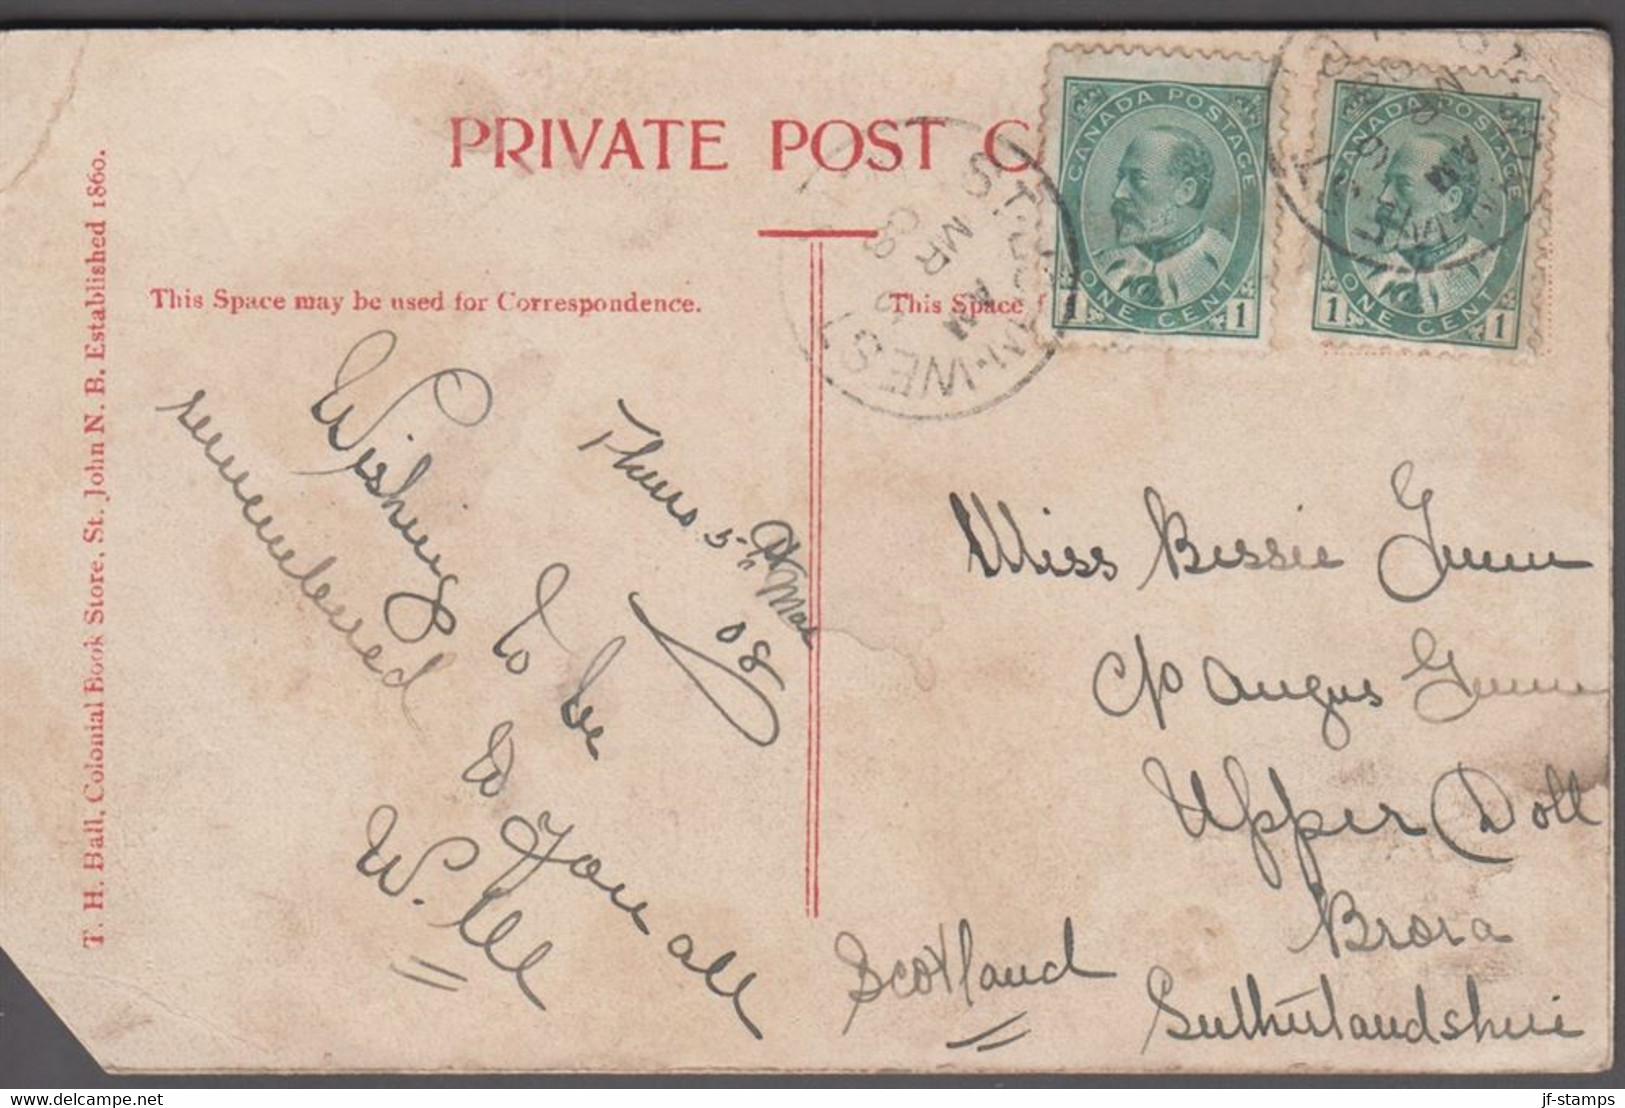 PRIVATE POST C
CANADA POSTAGE
ONE CENT
1 1
CANADA POSTAGE
ONE CENT
1 1
MR
08
AM
T. H. Ball, Colonial Book Store, St. John N. B. Established 1860.
This Space may be used for Correspondence.
This Space f
Thurs 5th Mar
08
Wishing to be
remembered
to You all
Will
Miss Bessie Gunn
c/o Angus Gunn
Upper Doll
Brora
Sutherlandshire
Scotland
delcampe.net
jf-stamps